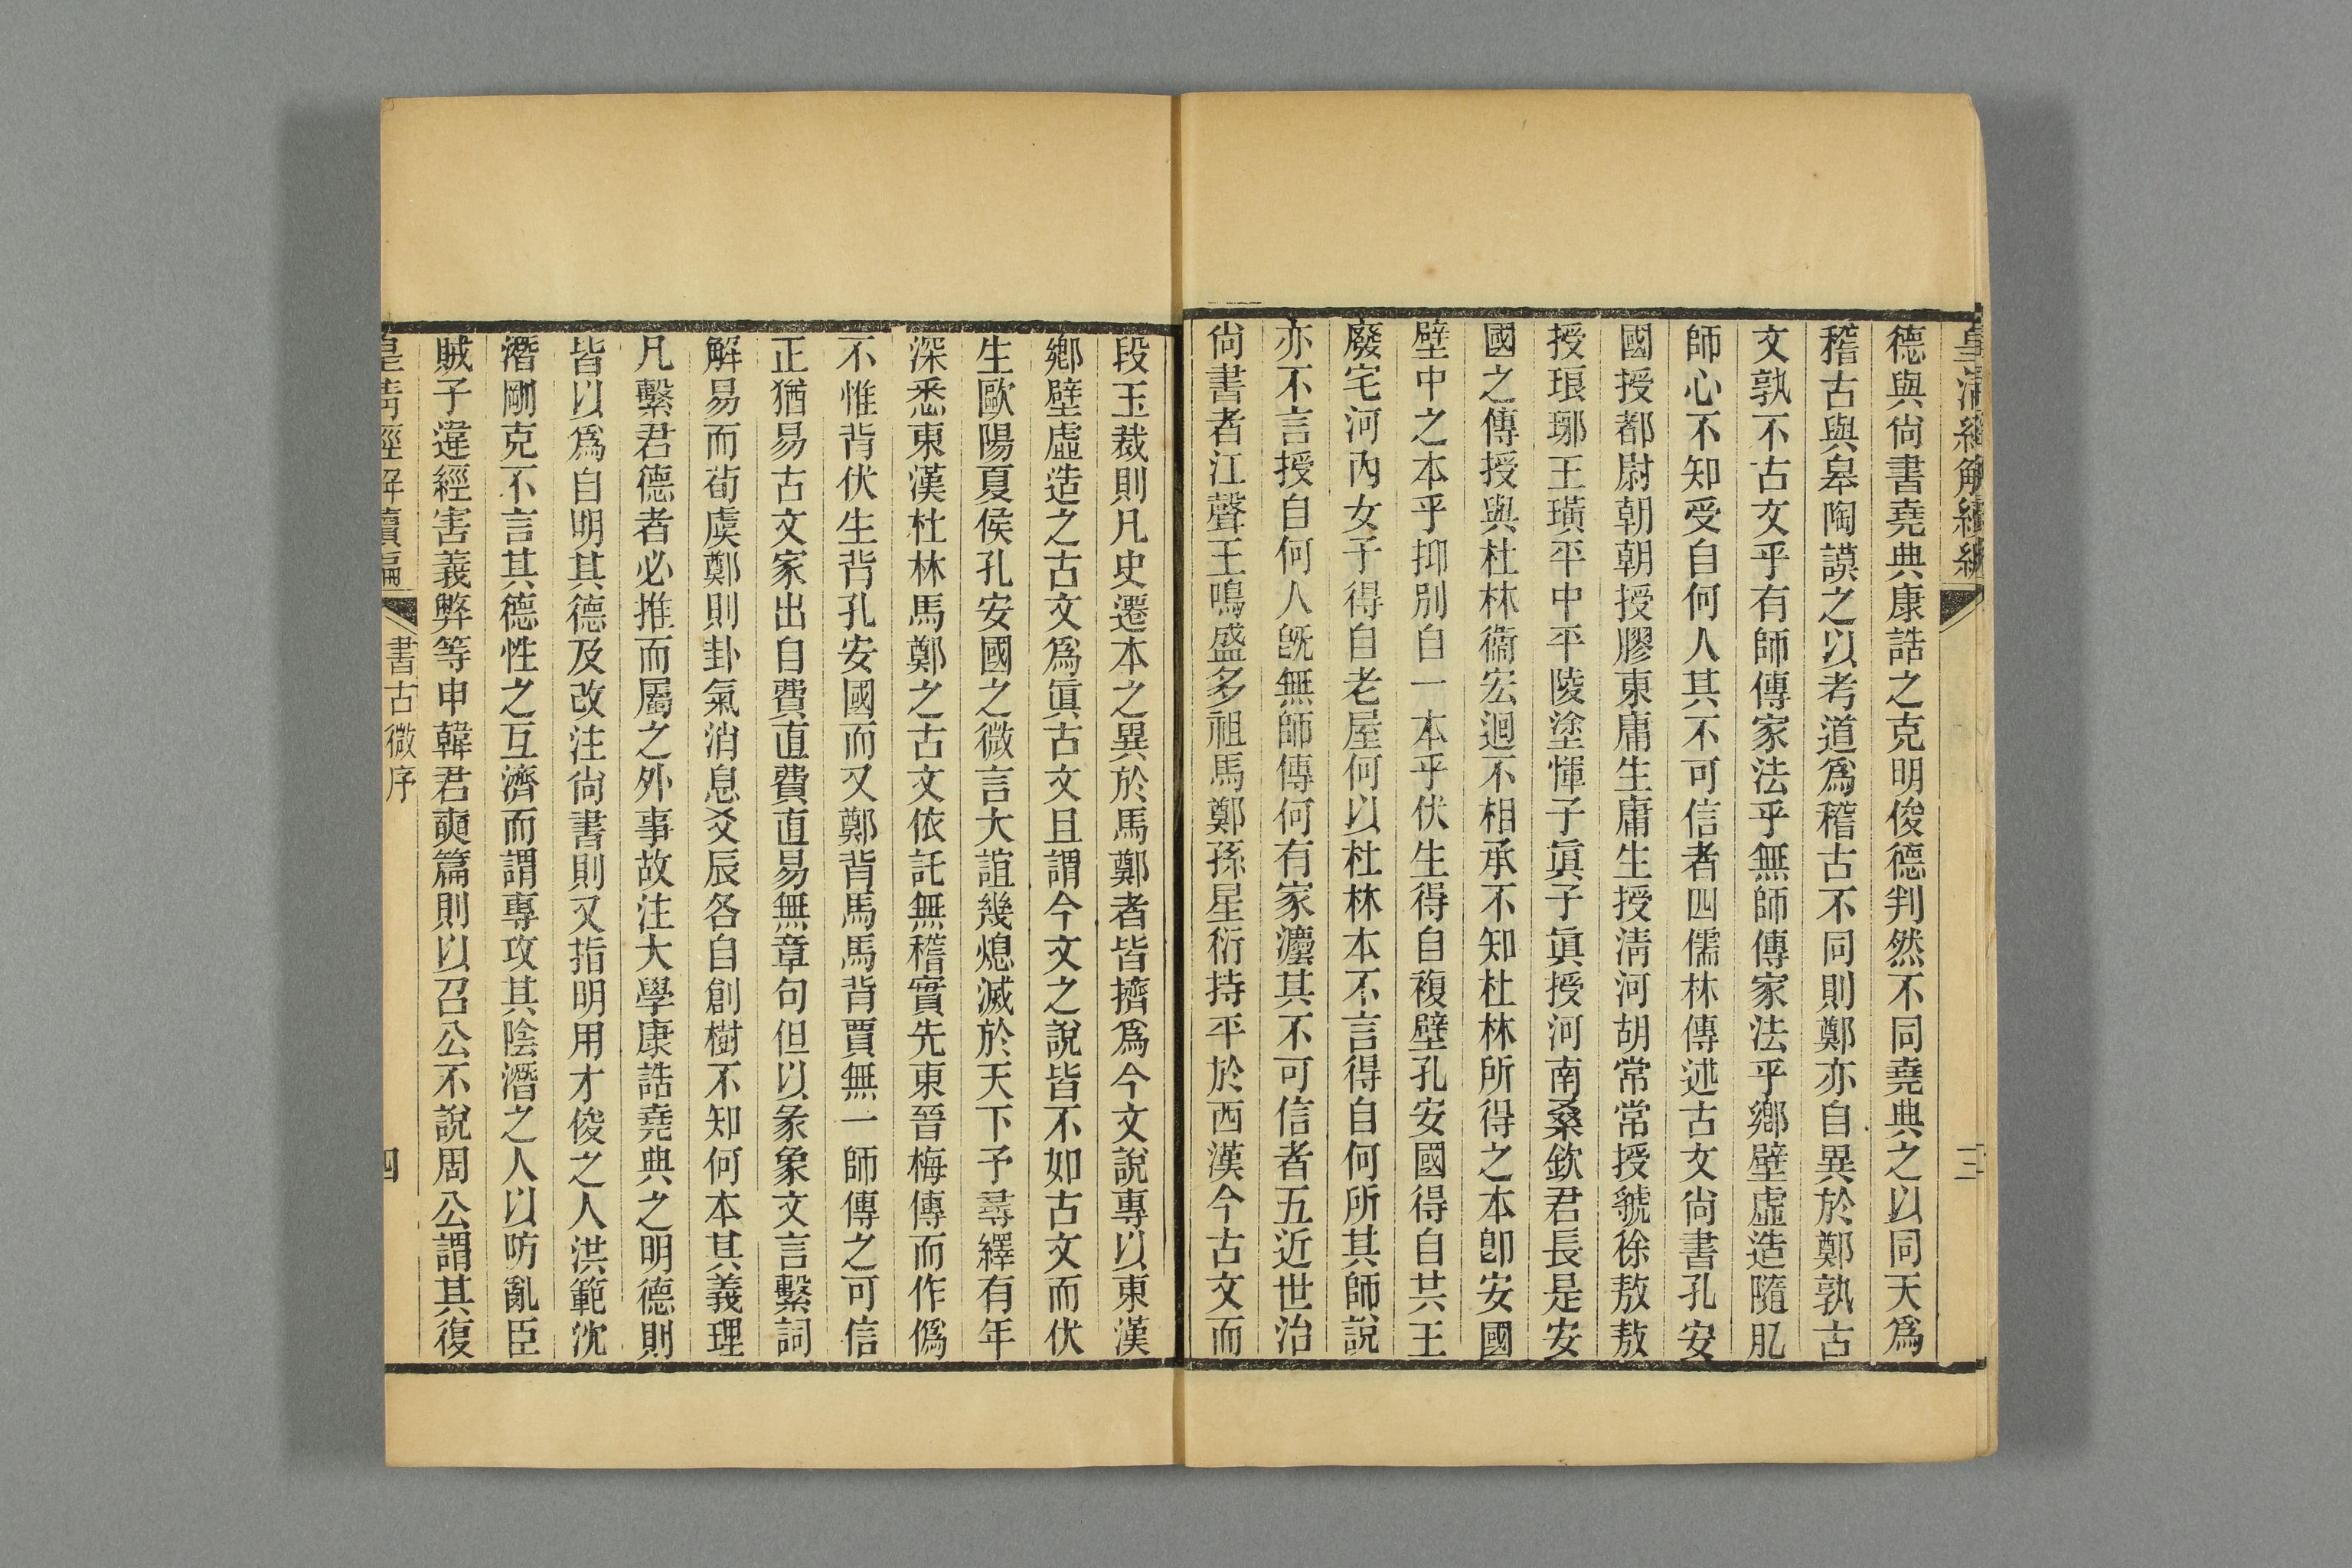 皇清經解續編
三
德與尙書堯典康誥之克明俊德判然不同堯典之以同天爲
稽古與皋陶謨之以考道爲稽古不同則鄭亦自異於鄭孰古
文孰不古文乎有師傳家法乎無師傳家法乎鄉壁虛造隨肊
師心不知受自何人其不可信者四儒林傳述古文尙書孔安
國授都尉朝朝授膠東庸生庸生授淸河胡常常授虢徐敖敖
授琅琊王璜平中平陵塗惲子眞子眞授河南桑欽君長是安
國之傳授與杜林衞宏迴不相承不知杜林所得之本卽安國
壁中之本乎抑別自一本乎伏生得自複壁孔安國得自共王
廢宅河內女子得自老屋何以杜林本不言得自何所其師說
亦不言授自何人旣無師傳何有家灋其不可信者五近世治
尙書者江聲王鳴盛多祖馬鄭孫星衍持平於西漢今古文而
段玉裁則凡史遷本之異於馬鄭者皆擠爲今文說專以東漢
鄉壁虛造之古文爲眞古文且謂今文之說皆不如古文而伏
生歐陽夏侯孔安國之微言大誼幾熄滅於天下予尋繹有年
深悉東漢杜林馬鄭之古文依託無稽實先東晉梅傳而作僞
不惟背伏生背孔安國而又鄭背馬馬背賈無一師傳之可信
正猶易古文家出自費直費直易無章句但以彖象文言繫詞
解易而荀虞鄭則卦氣消息爻辰各自創樹不知何本其義理
凡繫君德者必推而屬之外事故注大學康誥堯典之明德則
皆以爲自明其德及改注尙書則又指明用才俊之人洪範沈
潛剛克不言其德性之互濟而謂專攻其陰潛之人以防亂臣
賊子違經害義弊等申韓君奭篇則以召公不說周公謂其復
皇淸經解續編
書古微序
四